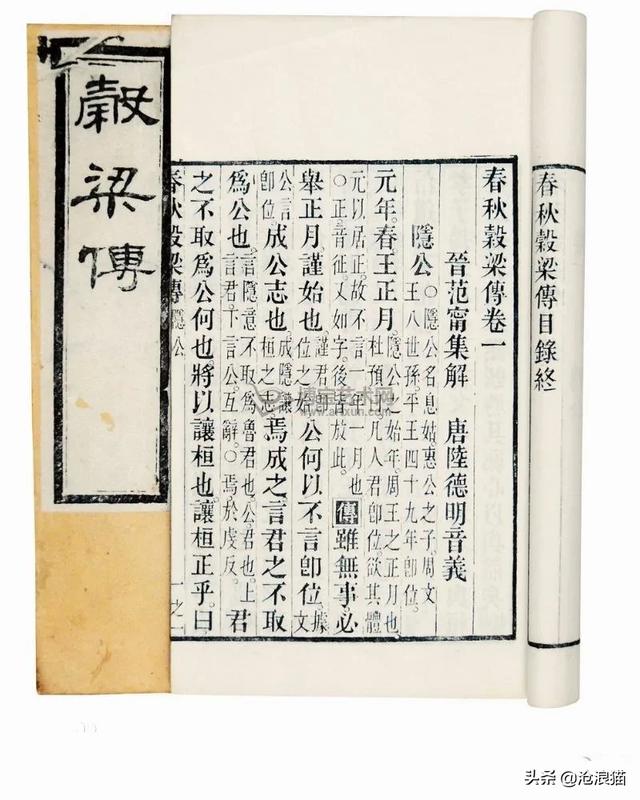 穀梁傳
春秋穀梁傳目錄終
春秋穀梁傳卷一
晉范甯集解　唐陸德明音義
隱公○隱公名息姑惠公之子。周文王八世孫。平王四十九年卽位。
元年。春王正月。隱公之始年。周王之正月也。杜預曰凡人君卽位。欲其體
元以居正。故不言一年一月也。○正音征又如字。後皆放此。傳雖無事必
舉正月。謹始也。謹君卽位之始公何以不言卽位。據文
公言卽位成公志也。成隱讓桓之志焉成之言君之不取
爲公也。言隱意不取爲魯君也。公君也。上言君。下言公。互辭。○焉。於虔反。君
之不取爲公何也將以讓桓也。讓桓正乎。曰
春秋穀梁傳　隱公　一之一
博宝艺术网
artxun.com
头条 @沧浪猫